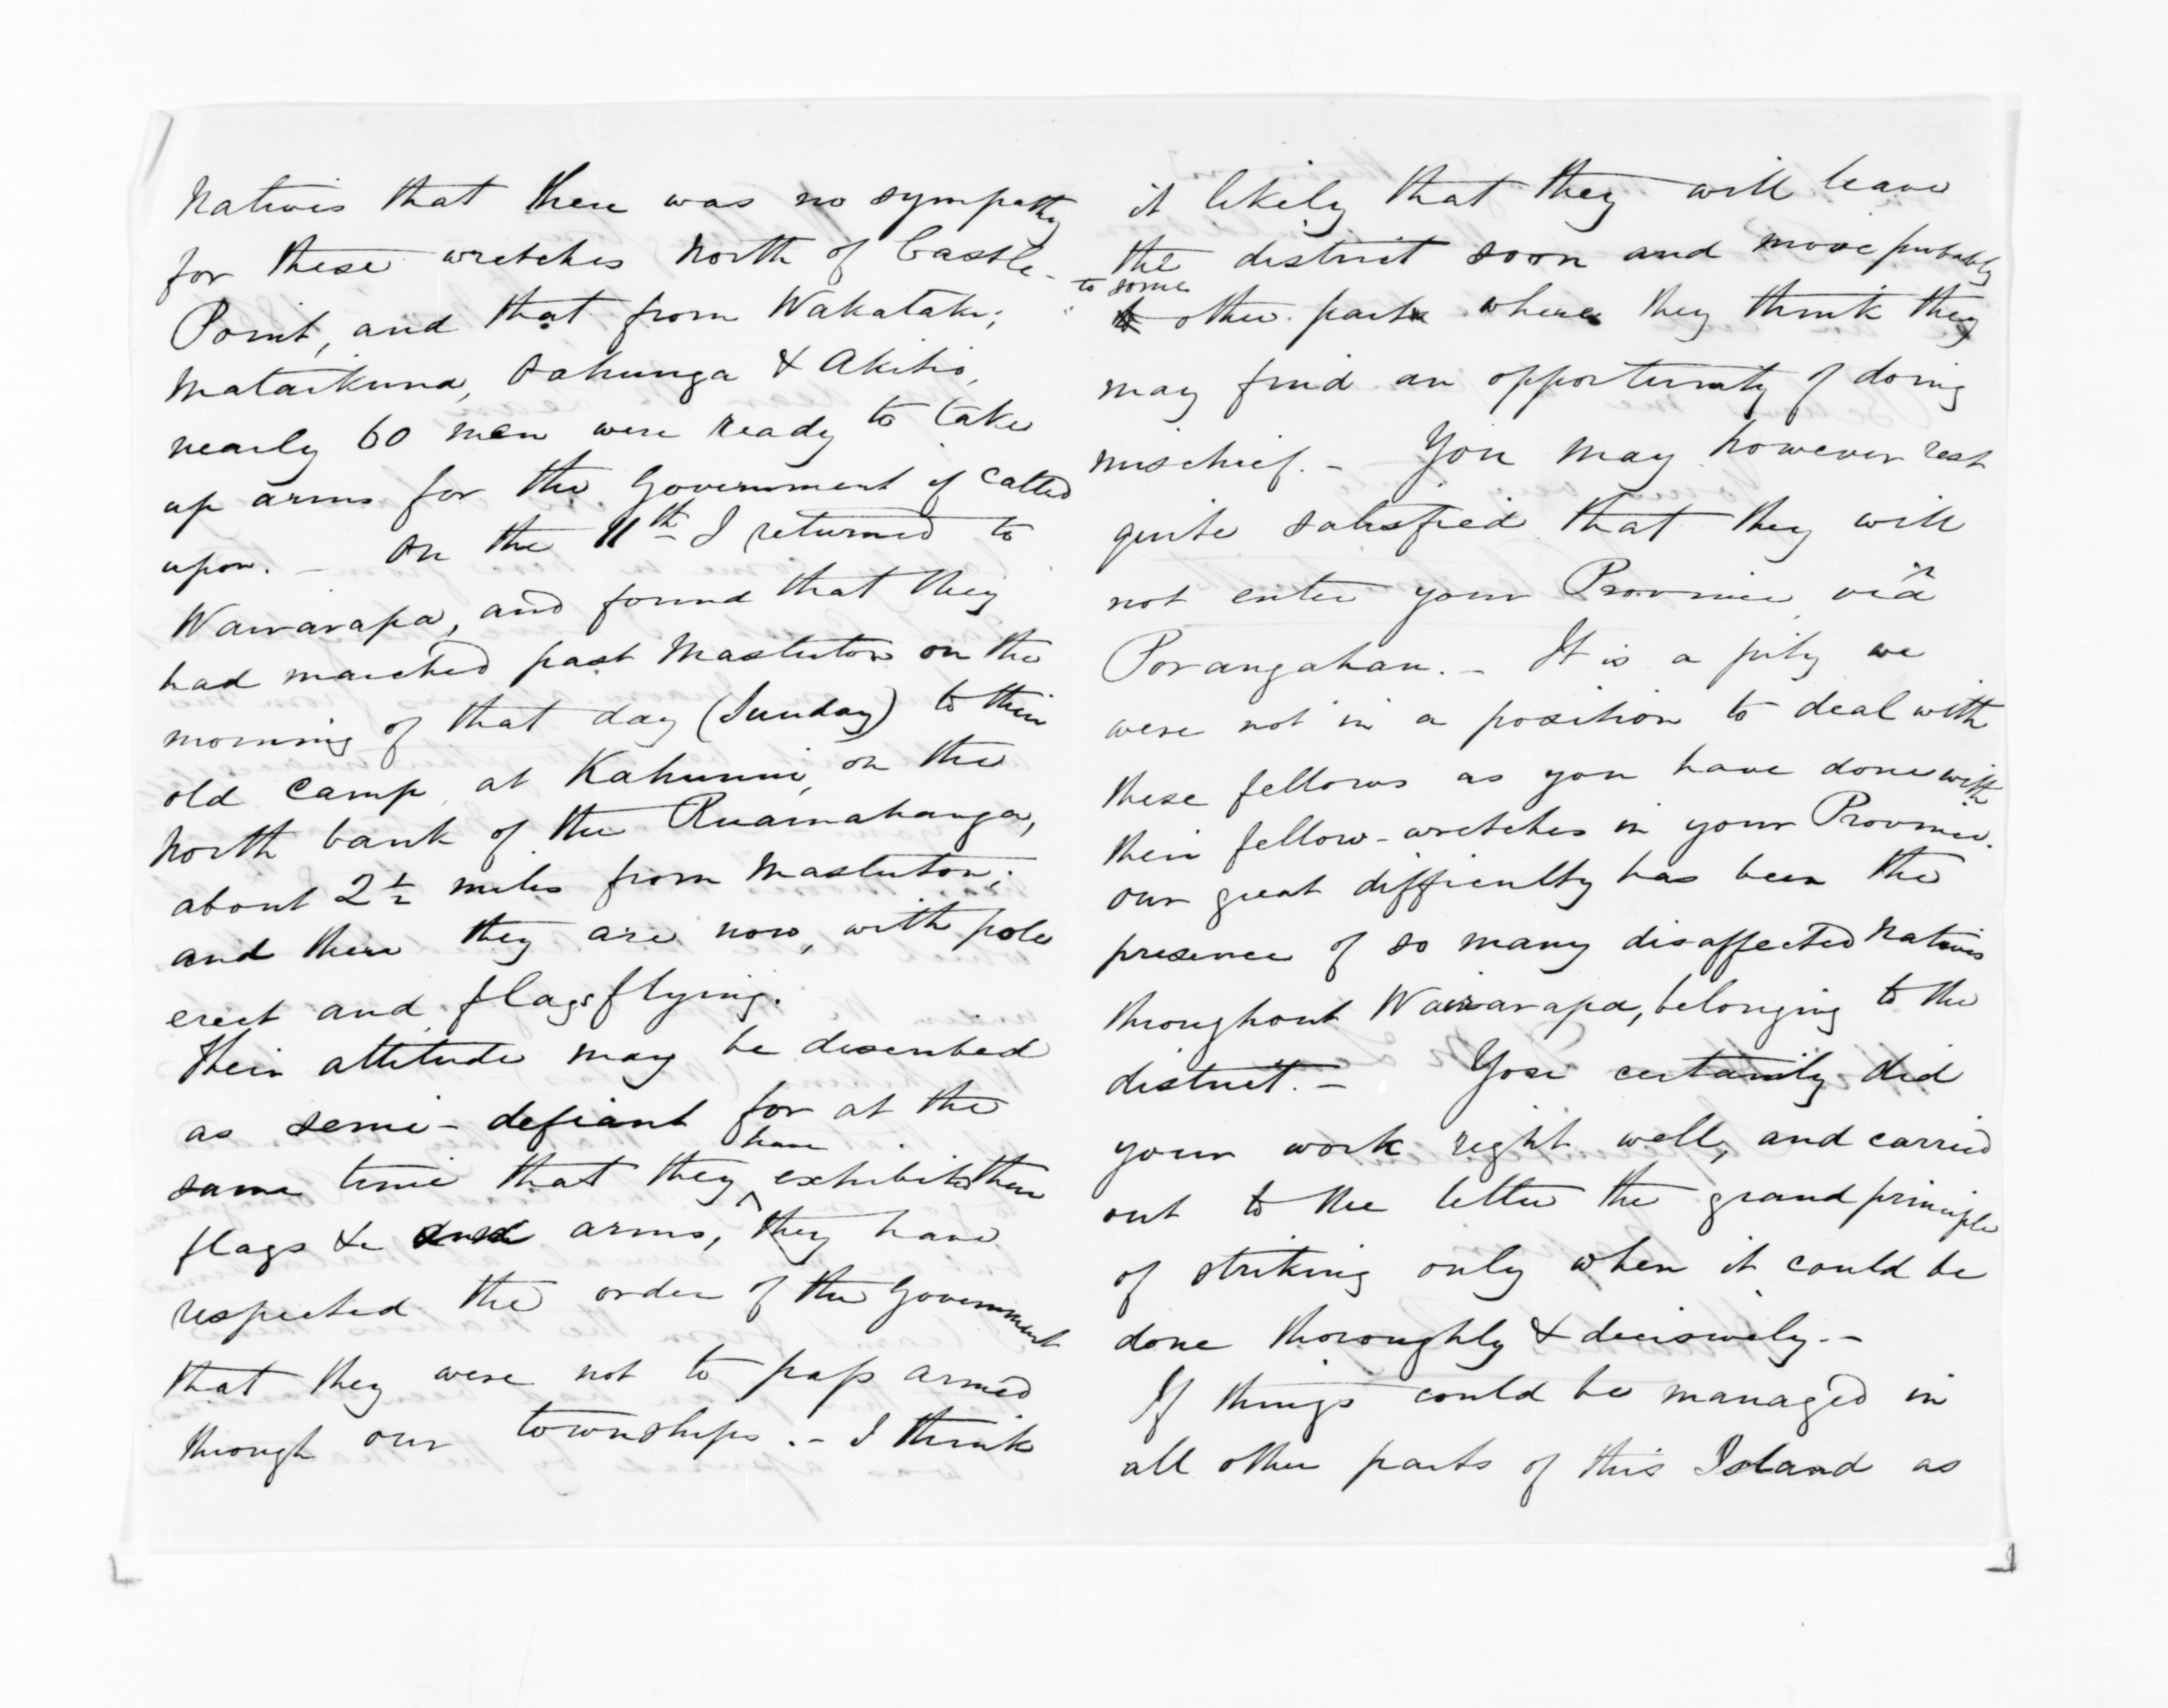 Natives that there was no sympathy
for these wretches North of Castle-
Point, and that from Wakataki;
Mataikuna, Oahunga & Akitio,
nearly 60 men were ready to take
up arms for the Government if called
upon. - On the 11th I returned to
Wairarapa, and found that they
had marched past Masterton on the
morning of that day (Sunday) to their
old camp at Kahumui, on the
North bank of the Ruamahanga,
about 2½ miles from Masterton;
and there they are now, with pole
erect and flags flying.
Their attitude may be described
as semi-defiant for at the
have
same time that they exhibited their
flags &c and arms, they have
respected the order of the Government
that they were not to pass armed
through our townships. - I think
it likely that they will leave
the district soon and move probably
to some
to other part where they think they
may find an opportunity of doing
mischief. - You may however rest
quite satisfied that they will
not enter your Province viâ
Porangahau. - It is a pity we
were not in a position to deal with
these fellows as you have done with
their fellow-wretches in your Province.
Our great difficulty has been the
presence of so many disaffected Natives
throughout Wairarapa, belonging to the
district. - You certainly did
your work right well, and carried
out to the letter the grand principle
of striking only when it could be
done thoroughly & decisively. -
If things could be managed in
all other parts of this Island as